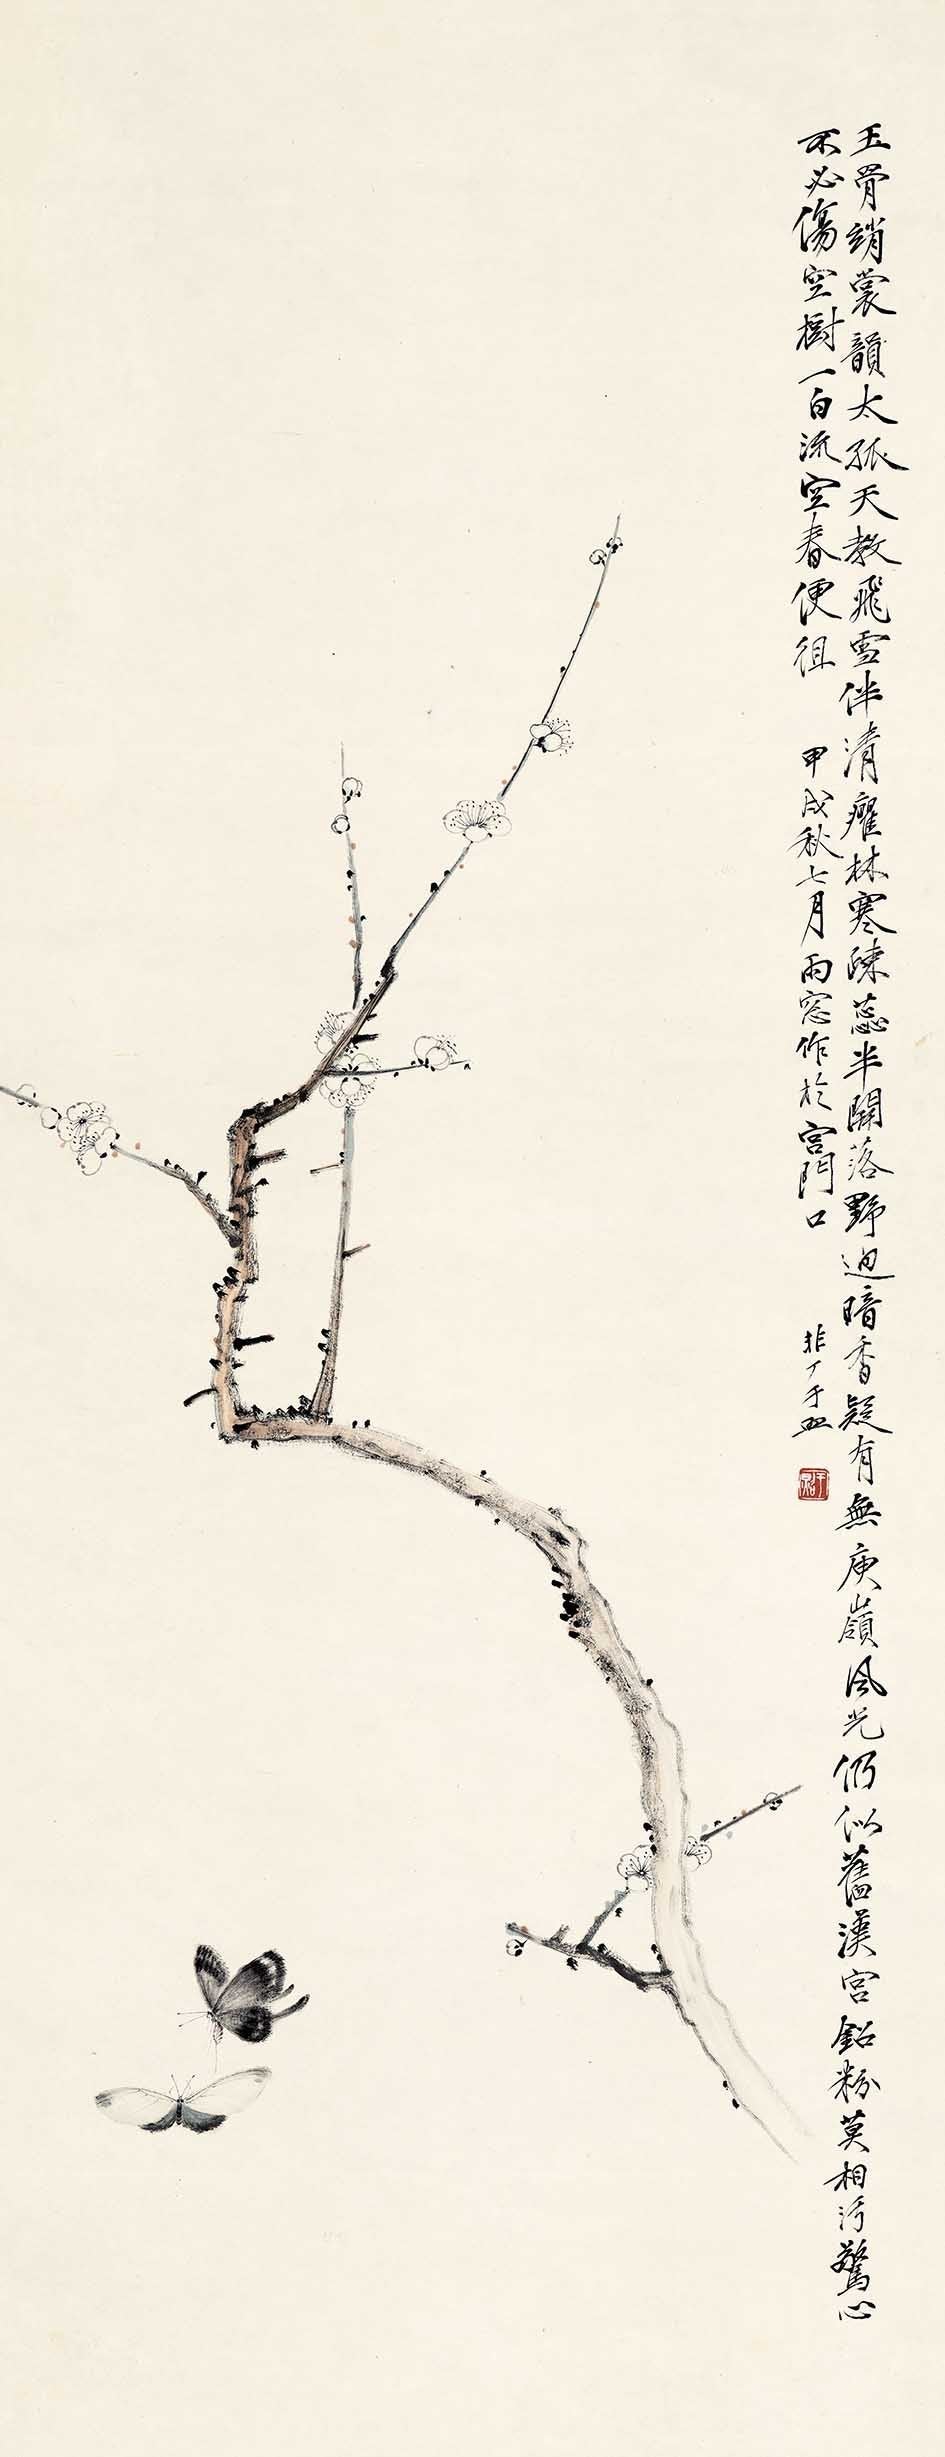 玉骨綃裳韻太孤天教飛雪伴清癯林寒疎蕊半開落野迥暗香疑有無庾嶺風光仍似舊漢宮鉛粉莫相污驚心
不必傷空樹一白流空春便徂 甲戌秋七月雨窗作於宮門口 非厂于照
于照